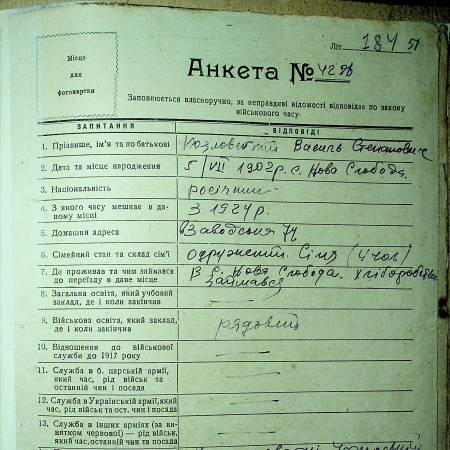 Літ. 184 51
Місце
для
фотокартки
Анкета №
Заповнюється власноручно, за неправдиві відомості відповідає по закону
військового часу.
ЗАПИТАННЯ ВІДПОВІДІ
1. Прізвище, ім'я та по батькові Козловський Василь Степанович
2. Дата та місце народження 5/VII 1902 р. с. Нова Слобода.
3. Національність росіянин
4. З якого часу мешкає в да- З 1924 р.
ному місці
5. Домашня адреса Заводська
6. Сімейний стан та склад сім'ї одружений. Сімя (4 чол)
7. Де проживав та чим займався В с. Нова Слобода. Хліборобством
до переїзду в дане місце займався
8. Загальна освіта, який учбовий
заклад, де і коли закінчив
9. Військова освіта, який заклад, рядовий
де і коли закінчив
10. Відношення до військової
служби до 1917 року
11. Служба в б. царській армії,
який час, рід військ та
останній чин і посада
12. Служба в Українській армії, який
час, рід військ та ост. чин і посада
13. Служба в інших арміях (за ви-
нятком червоної) — рід військ,
який час, останній чин та посада